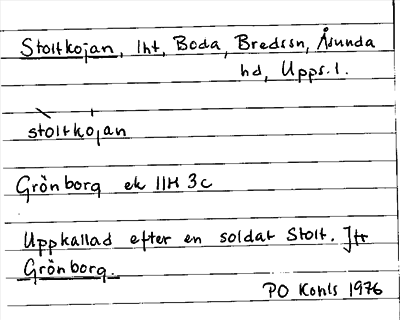 Stoltkojan, lht, Boda, Bredssn, Åsunda
hd, Upps. l.
stoltkojan
Grönborg ek 11H 3c
Uppkallad efter en soldat Stolt. Jfr
Grönborg.
PO Kohls 1976